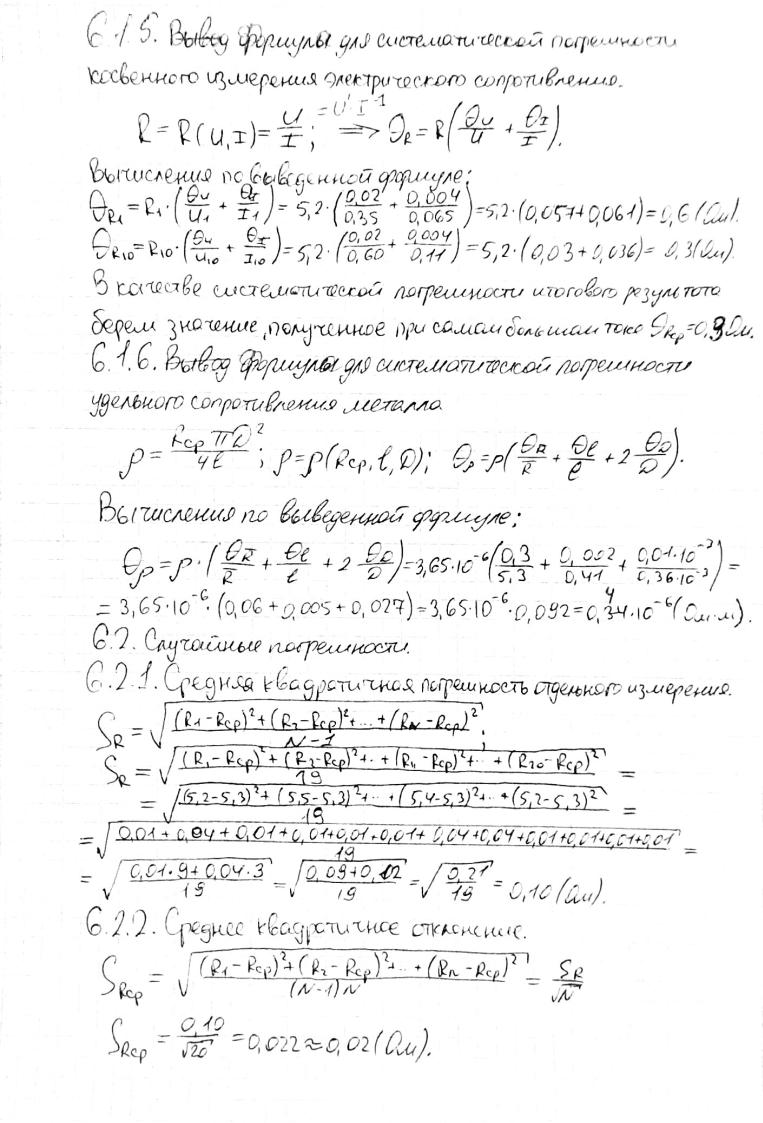 6.1.5. Вывод формулы для систематической погрешности
косвенного измерения электрического сопротивления.
R = R(U,I) = U/I; = U¹I⁻¹ ⟹ Θ_R = R(Θ_U/U + Θ_I/I).
Вычисления по выведенной формуле:
Θ_R1 = R₁·(Θ_U/U₁ + Θ_I/I₁) = 5,2·(0,02/0,35 + 0,004/0,065) = 5,2·(0,057+0,061) = 0,6 (Ом).
Θ_R10 = R₁₀·(Θ_U/U₁₀ + Θ_I/I₁₀) = 5,2·(0,02/0,60 + 0,004/0,11) = 5,2·(0,03+0,036) = 0,3 (Ом).
В качестве систематической погрешности итогового результата
берем значение, полученное при самом большом токе Θ_Rср = 0,3 Ом.
6.1.6. Вывод формулы для систематической погрешности
удельного сопротивления металла
ρ = Rср πD²/4l; ρ = ρ(Rср, l, D); Θ_ρ = ρ(Θ_R/R + Θ_l/l + 2 Θ_D/D).
Вычисления по выведенной формуле:
Θ_ρ = ρ·(Θ_R/R + Θ_l/l + 2 Θ_D/D) = 3,65·10⁻⁶(0,3/5,3 + 0,002/0,41 + 0,01·10⁻³/0,36·10⁻³) =
= 3,65·10⁻⁶·(0,06 + 0,005 + 0,027) = 3,65·10⁻⁶·0,092 = 0,34·10⁻⁶ (Ом·м).
6.2. Случайные погрешности.
6.2.1. Средняя квадратичная погрешность отдельного измерения.
S_R = √((R₁-Rср)²+(R₂-Rср)²+...+(R_N-Rср)²/N-1);
S_R = √((R₁-Rср)²+(R₂-Rср)²+..+(R₁₁-Rср)²+..+(R₂₀-Rср)²/19) =
= √((5,2-5,3)²+(5,5-5,3)²+..+(5,4-5,3)²+..+(5,2-5,3)²/19) =
= √(0,01+0,04+0,01+0,01+0,01+0,01+0,04+0,04+0,01+0,01+0,01+0,01/19) =
= √(0,01·9+0,04·3/19) = √(0,09+0,12/19) = √(0,21/19) = 0,10 (Ом).
6.2.2. Среднее квадратичное отклонение.
S_Rср = √((R₁-Rср)²+(R₂-Rср)²+..+(R_N-Rср)²/(N-1)N) = S_R/√N
S_Rср = 0,10/√20 = 0,022 ≈ 0,02 (Ом).